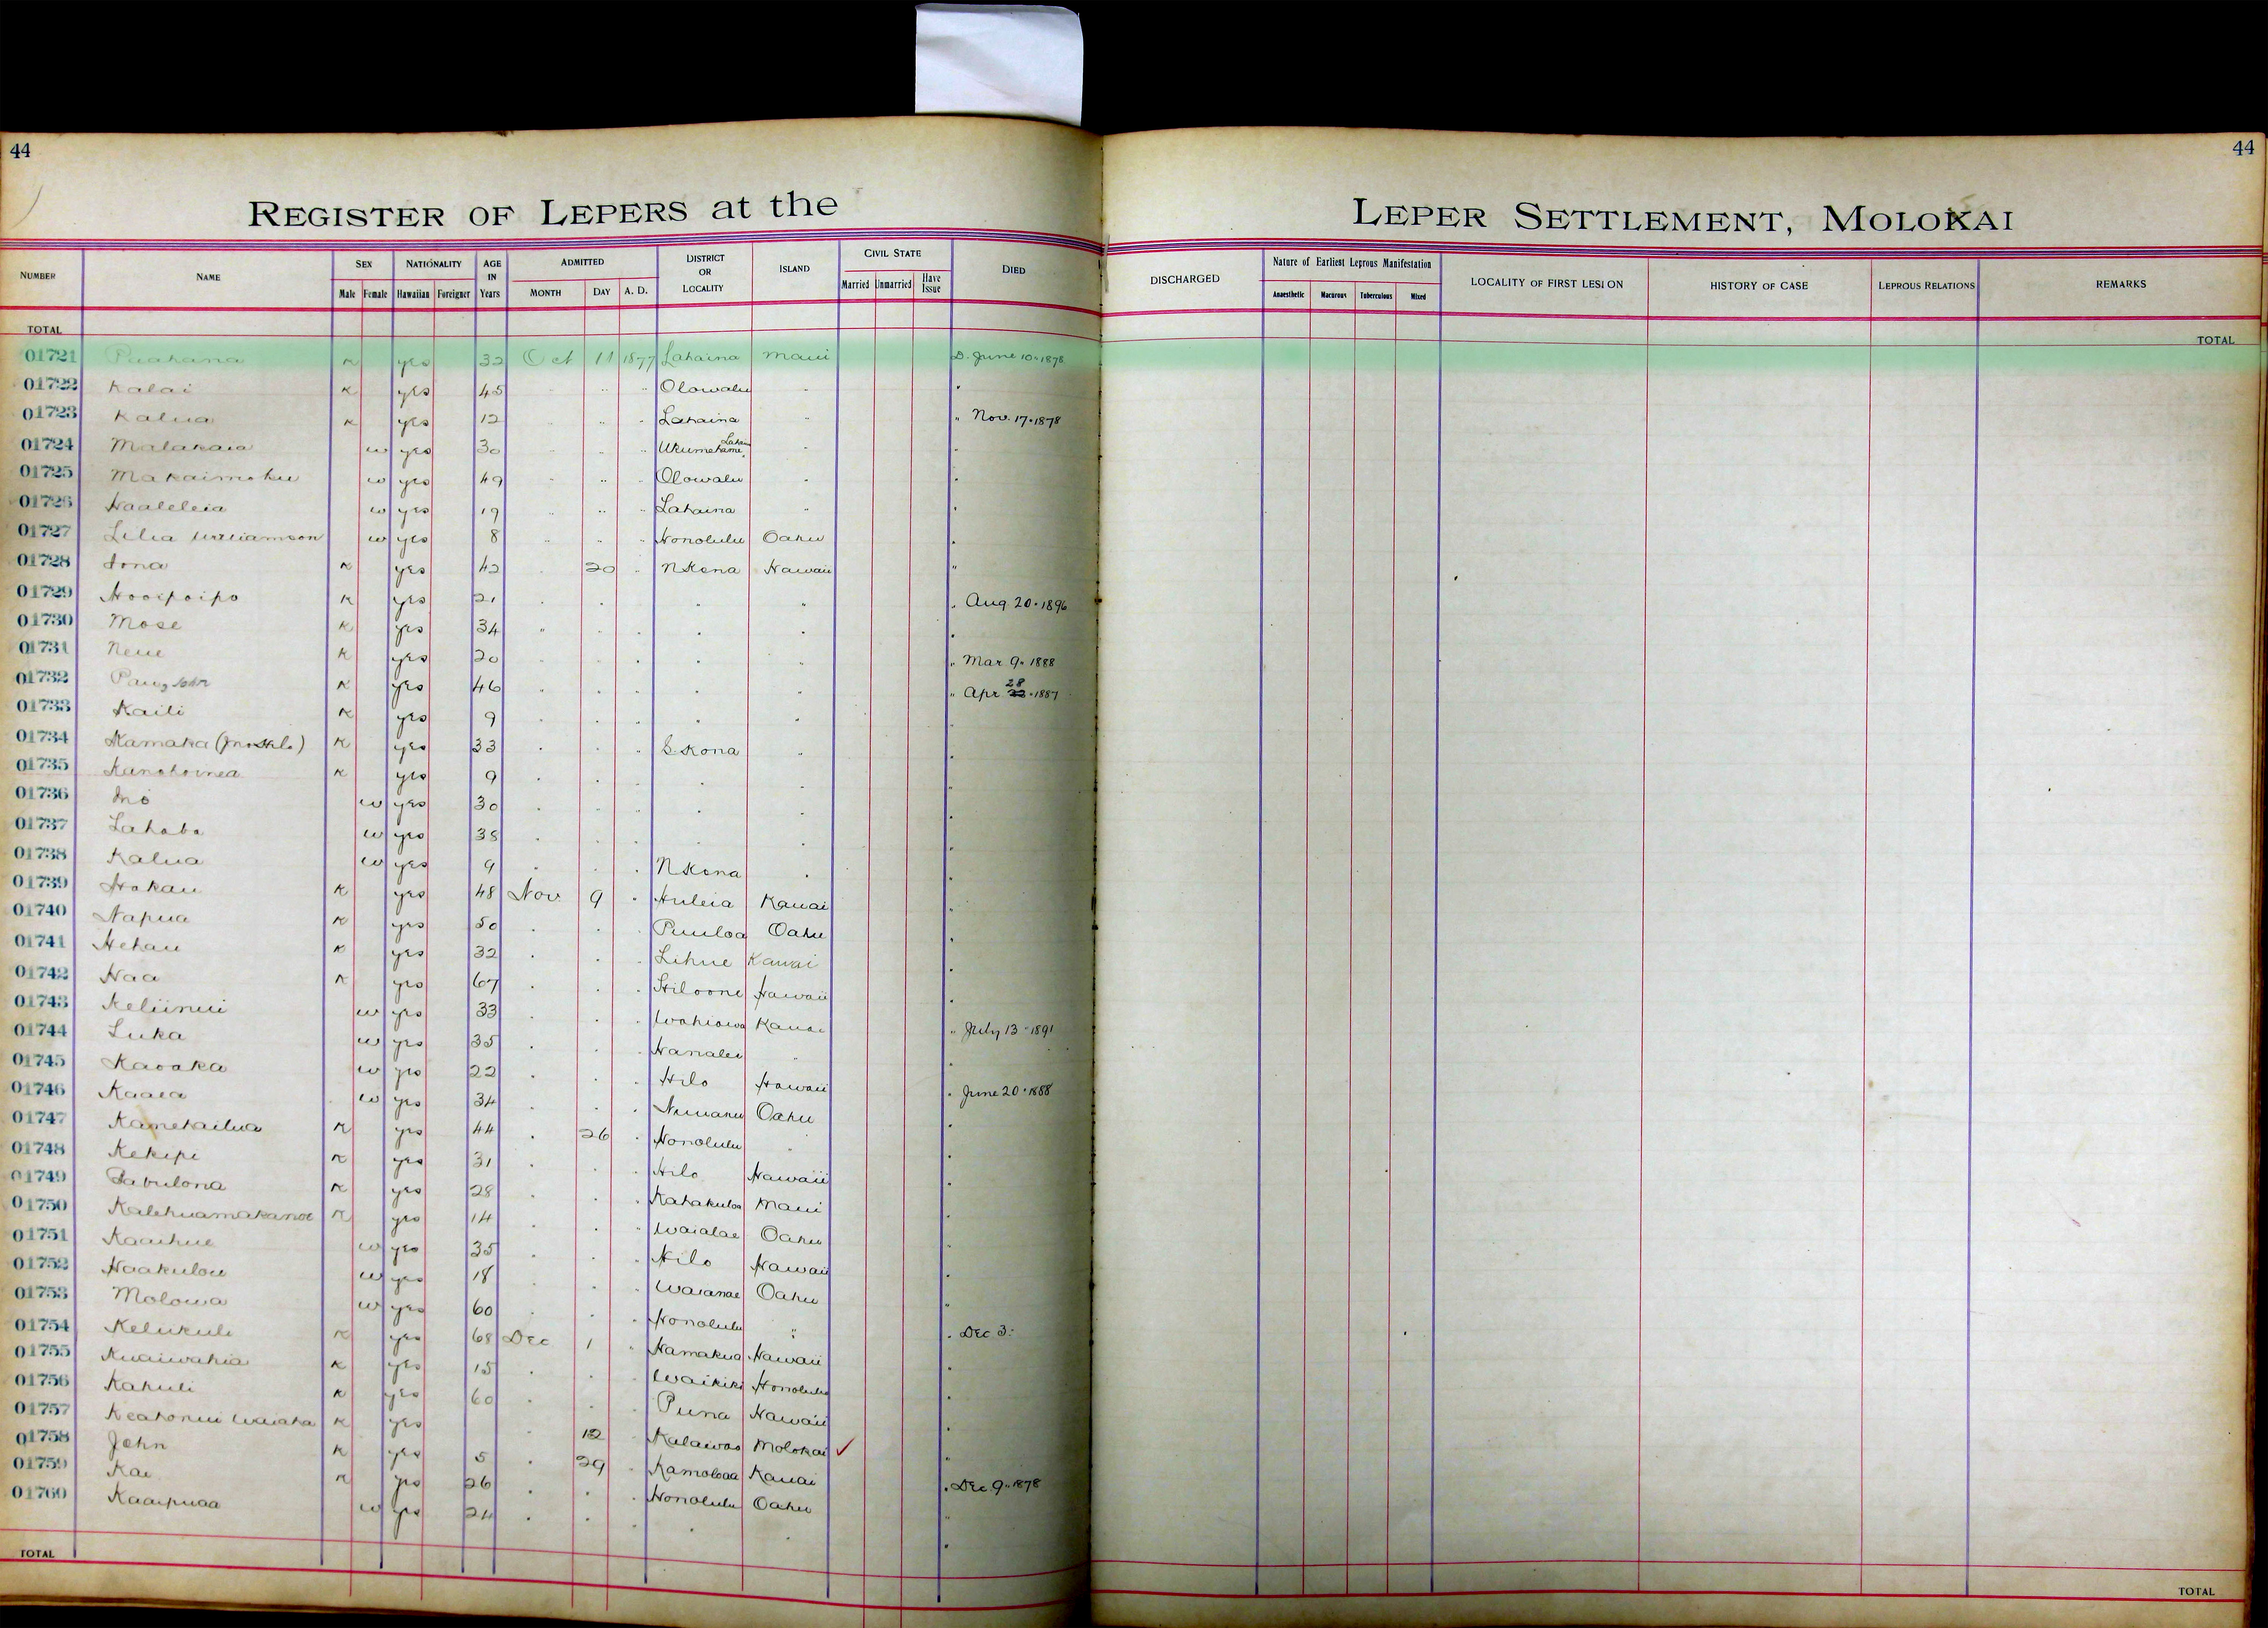 44
44
REGISTER OF LEPERS at the LEPER SETTLEMENT, MOLOKAI
NUMBER NAME SEX NATIONALITY AGE IN Years ADMITTED DISTRICT OR LOCALITY ISLAND CIVIL STATE DIED DISCHARGED Nature of Earliest Leprous Manifestation LOCALITY OF FIRST LESION HISTORY OF CASE LEPROUS RELATIONS REMARKS
Male Female Hawaiian Foreigner MONTH DAY A. D. Married Unmarried Have Issue Anaesthetic Macurous Tuberculous Mixed
TOTAL TOTAL
01721 Puahana K yes 32 Oct 11 1877 Lahaina Maui D. June 10 " 1878
01722 Kalai K yes 45 " " " Olowalu " "
01723 Kalua K yes 12 " " " Lahaina " " Nov. 17 " 1878
01724 Malakaia w yes 30 " " " Ukumehame, " "
01725 Makaimoku w yes 49 " " " Olowalu " "
01726 Haaleleia w yes 19 " " " Lahaina " "
01727 Lilia Williamson w yes 8 " " " Honolulu Oahu "
01728 Iona K yes 42 " 20 " N Kona Hawaii "
01729 Hooipoipo K yes 21 " " " " " Aug. 20 " 1896
01730 Mose K yes 34 " " " " " "
01731 Neue K yes 20 " " " " " " Mar 9 " 1888
01732 John K yes 46 " " " " " " Apr 28 " 1887
01733 Kaili K yes 9 " " " " "
01734 Kamaka K yes 33 " " " S. Kona " "
01735 K yes 9 " " " " " "
01736 w yes 30 " " " " " "
01737 w yes 38 " " " " " "
01738 Kalua w yes 9 " " " N Kona " "
01739 Hokau K yes 48 Nov 9 " Huleia Kauai "
01740 Napua K yes 50 " " " Puuloa Oahu "
01741 Hehau K yes 32 " " " Lihue Kauai "
01742 Naa K yes 67 " " " Hiloone Hawaii "
01743 Keliinui w yes 33 " " " Wahiawa Kauai " July 13 " 1891
01744 Luka w yes 35 " " " Hanalei " "
01745 Kaoaka w yes 22 " " " Hilo Hawaii " June 20 " 1888
01746 Kaaea w yes 34 " " " Nuuanu Oahu "
01747 Kamekailua K yes 44 " 26 " Honolulu " "
01748 Kekipi K yes 31 " " " Hilo Hawaii "
01749 K yes 28 " " " Kahakuloa Maui "
01750 Kalehuamakanoe K yes 14 " " " Waialae Oahu "
01751 Kaaihue w yes 35 " " " Hilo Hawaii "
01752 Haakulou w yes 18 " " " Waianae Oahu "
01753 Molowa w yes 60 " " " Honolulu " " Dec 3.
01754 K yes 68 Dec 1 " Hamakua Hawaii "
01755 Kuaiwahia K yes 15 " " " Waikiki Honolulu "
01756 Kahuli K yes 60 " " " Puna Hawaii "
01757 K yes " 12 " Kalawao Molokai ✓ "
01758 John K yes 5 " 29 " Kamoloaa Kauai " Dec 9 " 1878
01759 Kai K yes 26 " " " Honolulu Oahu "
01760 Kaaipuaa w yes 24 " " " " " "
TOTAL TOTAL